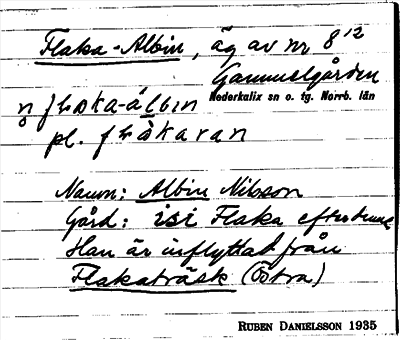 Flaka-Albin, äg av nr 8¹²
Gammelgården
Nederkalix sn o. tg. Norrb. län
pl. flåkaran
Namn: Albin Nilsson
Gård: isi Flaka efter
Han är inflyttat från
Flakaträsk (Östra)
RUBEN DANIELSSON 1935